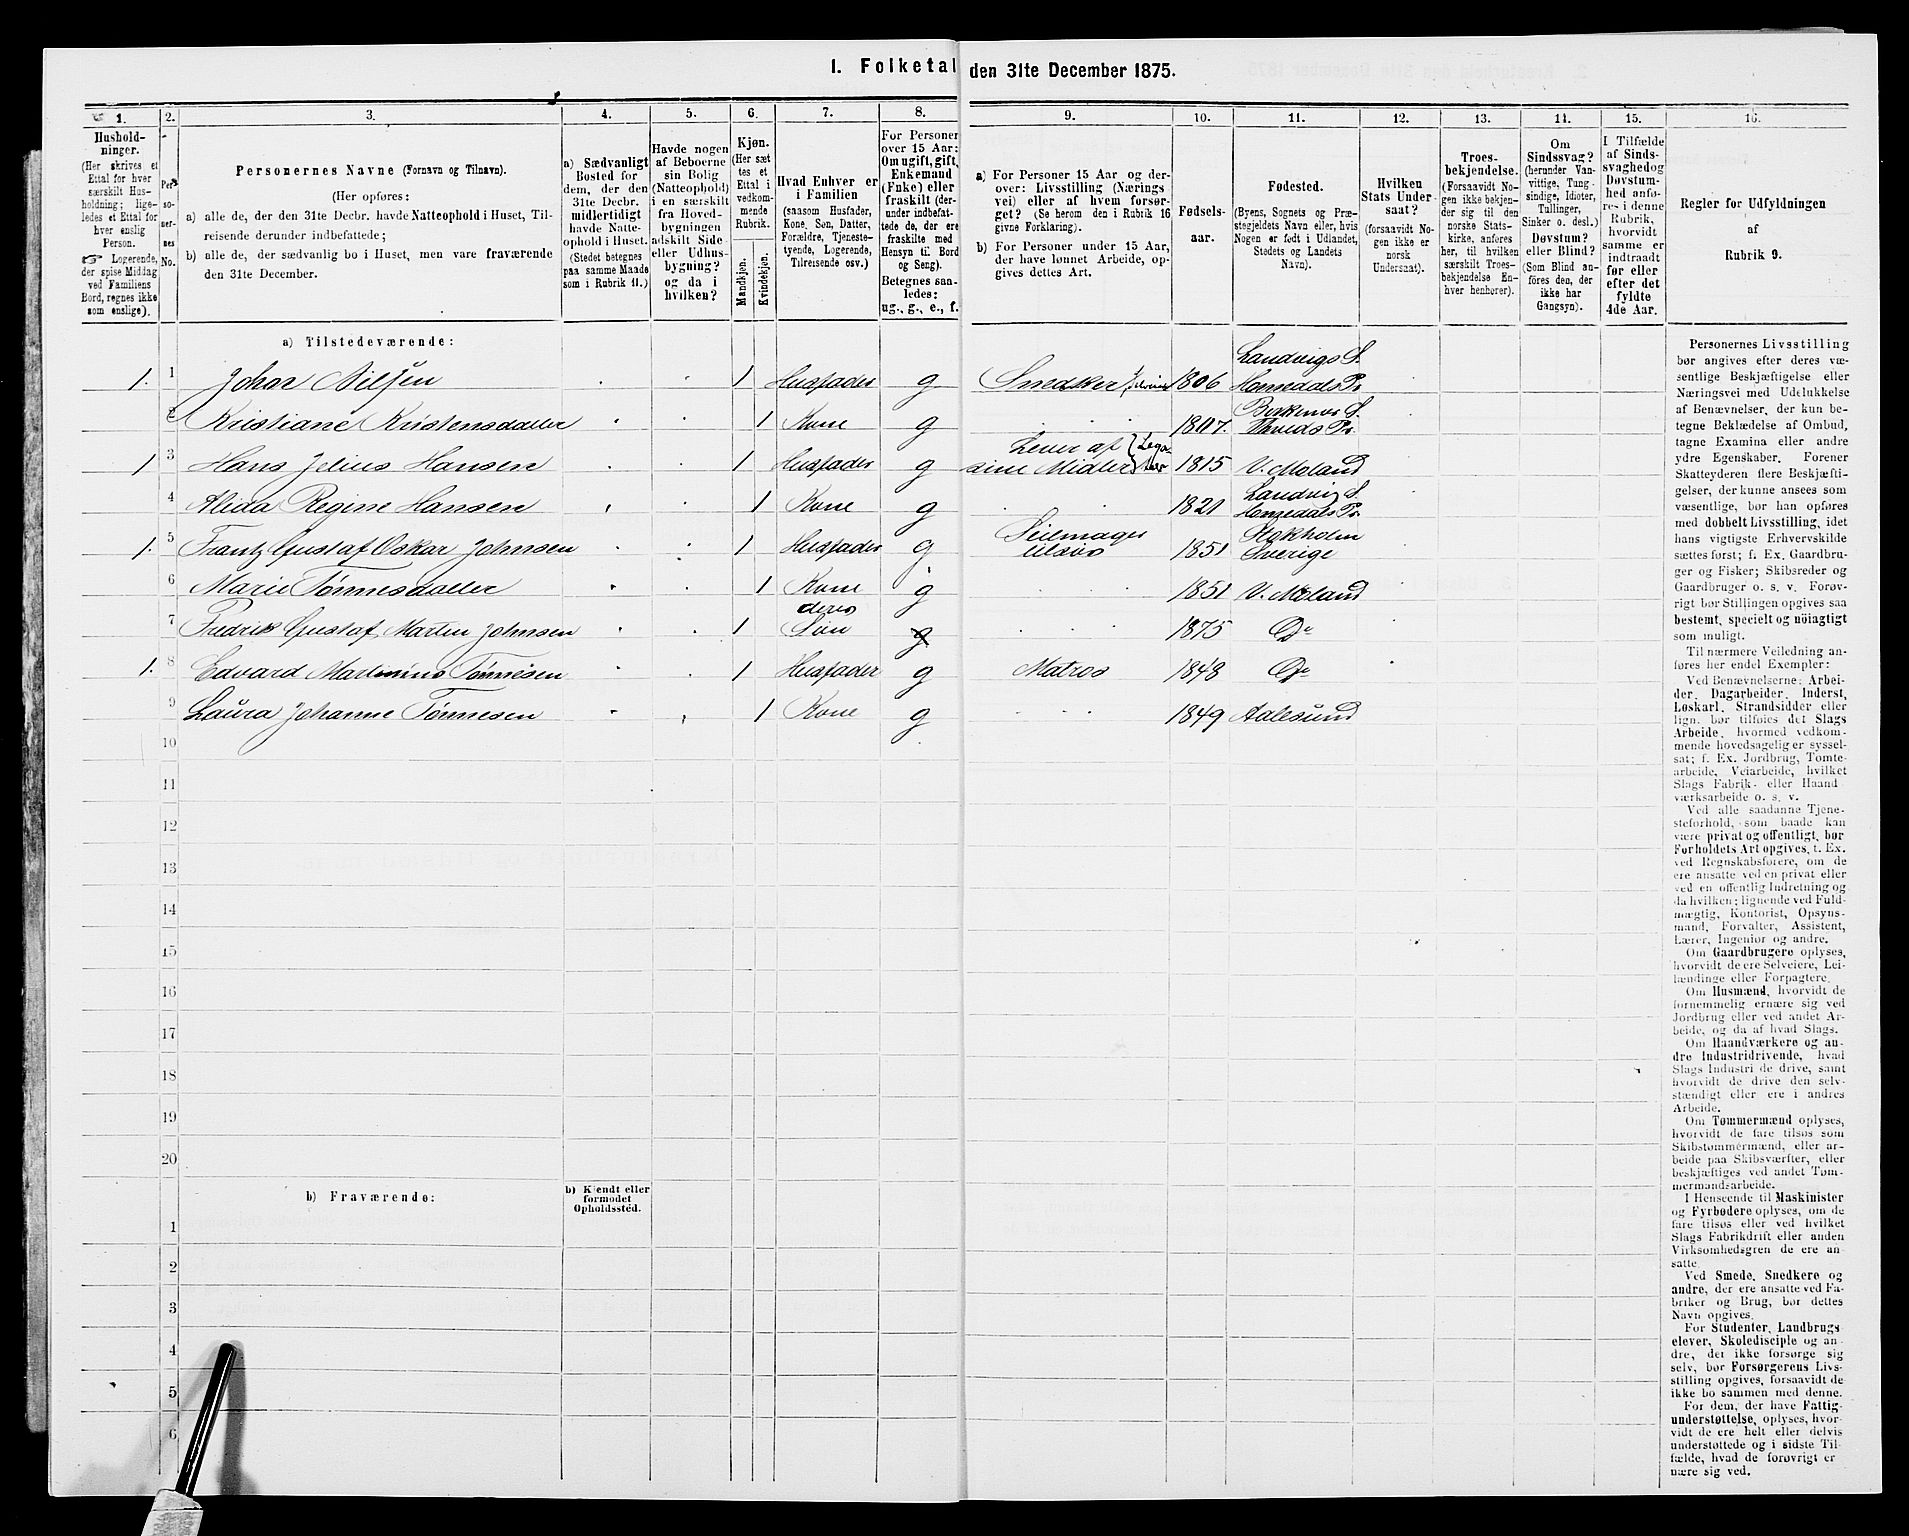 I. Folketal den 31te December 1875.
1. 2. 3. 4. 5. 6. 7. 8. 9. 10. 11. 12. 13. 14. 15. 16.
Hushold-
ninger.
(Her skrives et
Ettal for hver
særskilt Hus-
holdning; lige-
ledes et Ettal for
hver enslig
Person.
☞ Logerende,
der spise Middag
ved Familiens
Bord, regnes ikke
som enslige).
Per-
so-
ner-
nes
No.
Personernes Navne (Fornavn og Tilnavn).
(Her opføres:
a) alle de, der den 31te Decbr. havde Natteophold i Huset, Til-
reisende derunder indbefattede;
b) alle de, der sædvanlig bo i Huset, men vare fraværende
den 31te December.
a) Sædvanligt
Bosted for
dem, der den
31te Decbr.
midlertidigt
havde Natte-
ophold i Huset.
(Stedet betegnes
paa samme Maade
som i Rubrik 11.)
Havde nogen
af Beboerne
sin Bolig
(Natteophold)
i en særskilt
fra Hoved-
bygningen
adskilt Side-
eller Udhus-
bygning?
og da i
hvilken?
Kjøn.
(Her sæt
tes et
Ettal i
vedkom-
mende
Rubrik.
Mandkjøn.
Kvindekjøn.
Hvad Enhver er
i Familien
(saasom Husfader,
Kone, Søn, Datter,
Forældre, Tjeneste-
tyende, Logerende,
Tilreisende osv.)
For Personer
over 15 Aar:
Om ugift, gift,
Enkemand
(Enke) eller
fraskilt (der-
under indbefat-
tede de, der ere
fraskilte med
Hensyn til Bord
og Seng).
Betegnes saa-
ledes:
ug., g., e., f.
a) For Personer 15 Aar og der-
over: Livsstilling (Nærings-
vei) eller af hvem forsør-
get? (Se herom den i Rubrik 16
givne Forklaring).
b) For Personer under 15 Aar,
der have lønnet Arbeide, op-
gives dettes Art.
Fødsels-
aar.
Fødested.
(Byens, Sognets og Præ-
stegjeldets Navn eller, hvis
Nogen er født i Udlandet,
Stedets og Landets
Navn).
Hvilken
Stats Under-
saat?
(forsaavidt No-
gen ikke er
norsk
Undersaat).
Troes-
bekjendelse.
(Forsaavidt No-
gen ikke bekjen-
der sig til den
norske Stats-
kirke, anføres
her, til hvilken
særskilt Troes-
bekjendelse En-
hver henhører).
Om
Sindssvag?
(herunder Van-
vittige, Tung-
sindige, Idioter,
Tullinger,
Sinker o. desl.)
Døvstum?
eller Blind?
(Som Blind an-
føres den, der
ikke har
Gangsyn).
I Tilfælde
af Sinds-
svaghed og
Døvstum-
hed anfø-
res i denne
Rubrik,
hvorvidt
samme er
indtraadt
før eller
efter det
fyldte
4de Aar.
Regler for Udfyldningen
af
Rubrik 9.
a) Tilstedeværende:
1. 1 Johan Nilsen 1 Husfader g Snedker 1806 Landvigs S. Hommedals Pr
2 Kristiane Kristensdatter 1 Kone g 1807. Birkenes S. Pr.
1 3 Hans Jelius Hansen 1 Husfader g Lever af sine Midler 1815 V. Moland
4 Alida Regine Hansen 1 Kone g 1821 Landvig S. Hommedals Pr
1. 5 Frantz Gustaf Oskar Johnsen 1 Husfader g Seilmager tilsøs 1851 Stokholm Sverige
6 Marie Tønnesdatter 1 Kone g 1851 V. Moland
7 Fredrik Gustaf Martin Johnsen 1 deres Søn g 1875 Do
1. 8 Edvard Martinius Tønnesen 1 Husfader g Matros 1848 Do
9 Laura Johanne Tønnesen 1 Kone g 1849 Aalesund
10
11
12
13
14
15
16
17
18
19
20
b) Fraværende:
b) Kjendt eller
formodet
Opholdssted.
1
2
3
4
5
6
Personernes Livsstilling
bør angives efter deres væ-
sentlige Beskjæftigelse eller
Næringsvei med Udelukkelse
af Benævnelser, der kun be-
tegne Beklædelse af Ombud,
tagne Examina eller andre
ydre Egenskaber. Forener
Skatteyderen flere Beskjæfti-
gelser, der kunne ansees som
væsentlige, bør han opføres
med dobbelt Livsstilling, idet
hans vigtigste Erhvervskilde
sættes først; f. Ex. Gaardbru-
ger og Fisker; Skibsreder og
Gaardbruger o. s. v. Forøv-
rigt bør Stillingen opgives saa
bestemt, specielt og nöiagtigt
som muligt.
Til nærmere Veiledning an-
føres her endel Exempler:
Ved Benævnelserne: Arbei-
der, Dagarbeider, Inderst,
Løskarl, Strandsidder eller
lign. bør tilføies det Slags
Arbeide, hvormed vedkom-
mende hovedsagelig er syssel-
sat; f. Ex. Jordbrug, Tomte-
arbeide, Veiarbeide, hvilket
Slags Fabrik- eller Haand-
værksarbeide o. s. v.
Ved alle saadanne Tjene-
steforhold, som baade kan
være privat og offentligt, bør
Forholdets Art opgives, f. Ex.
ved Regnskabsførere, om de
ere ansatte ved en privat eller
ved en offentlig Indretning og
da hvilken; lignende ved Fuld-
mægtig, Kontorist, Opsyns-
mand, Forvalter, Assistent,
Lærer, Ingeniør og andre.
Om Gaardbrugere oplyses,
hvorvidt de ere Selveiere, Lei-
lændinge eller Forpagtere.
Om Husmænd, hvorvidt de
fornemmelig ernære sig ved
Jordbrug eller ved andet Ar-
beide, og da af hvad Slags.
Om Haandværkere og an-
dre Industridrivende, hvad
Slags Industri de drive, samt
hvorvidt de drive den selv-
stændigt eller ere i andres
Arbeide.
Om Tømmermænd oplyses,
hvorvidt de fare tilsøs som
Skibstømmermænd, eller ar-
beide paa Skibsværfter, eller
beskjæftiges ved andet Tøm-
mermandsarbeide.
I Henseende til Maskinister
og Fyrbødere oplyses, om de
fare tilsøs eller ved hvilket
Slags Fabrikdrift eller anden
Virksomhedsgren de ere an-
satte.
Ved Smede, Snedkere og
andre, der ere ansatte ved Fa-
briker og Brug, bør dettes
Navn opgives.
For Studenter, Landbrugs-
elever, Skoledisciple og an-
dre, der ikke forsørge sig
selv, bør Forsørgerens Livs-
stilling opgives, forsaavidt de
ikke bo sammen med denne.
For dem, der have Fattig-
understøttelse, oplyses, hvor-
vidt de ere helt eller delvis
understøttede og i sidste Til-
fælde, hvad de forøvrigt er-
nære sig ved.